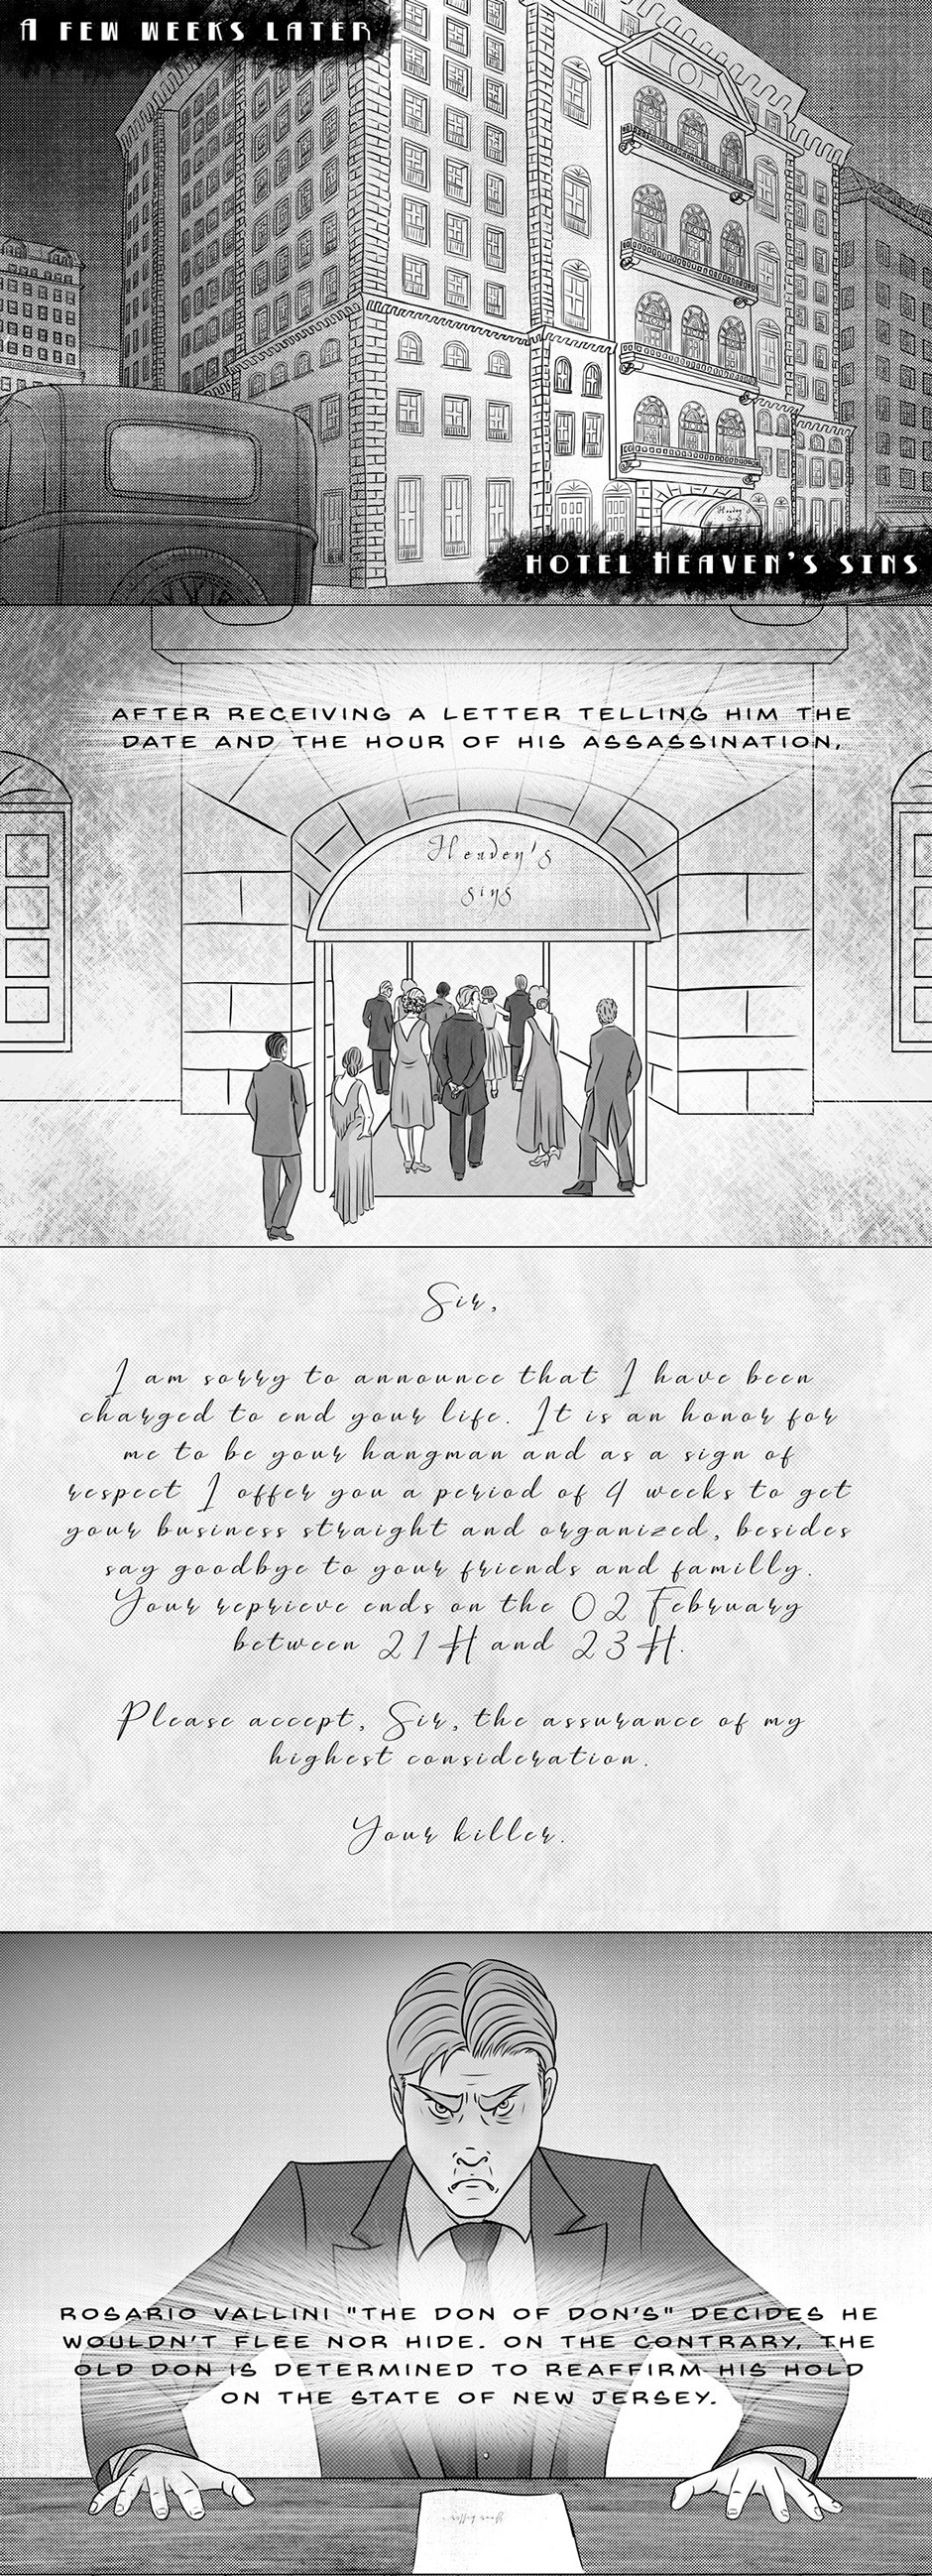 A FEW WEEKS LATER
Heaven's
Sins
HOTEL HEAVEN'S SINS
AFTER RECEIVING A LETTER TELLING HIM THE
DATE AND THE HOUR OF HIS ASSASSINATION,
Heaven's
sins
Sir,
I am sorry to announce that I have been
charged to end your life. It is an honor for
me to be your hangman and as a sign of
respect I offer you a period of 4 weeks to get
your business straight and organized, besides
say goodbye to your friends and familly.
Your reprieve ends on the 02 February
between 21H and 23H.
Please accept, Sir, the assurance of my
highest consideration.
Your killer.
ROSARIO VALLINI "THE DON OF DON'S" DECIDES HE
WOULDN'T FLEE NOR HIDE. ON THE CONTRARY, THE
OLD DON IS DETERMINED TO REAFFIRM HIS HOLD
ON THE STATE OF NEW JERSEY.
Your killer